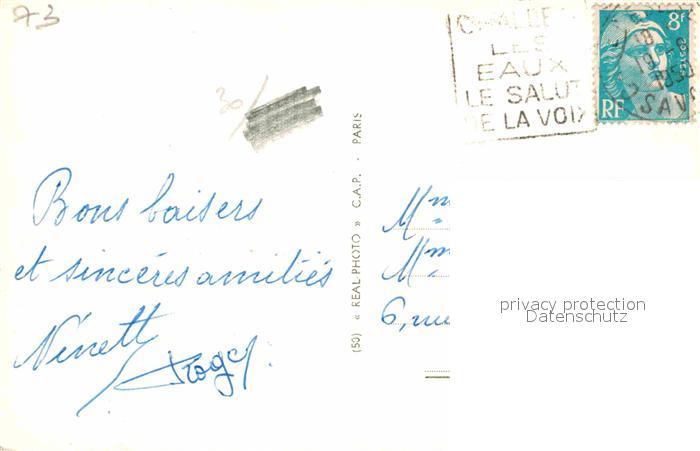 73
CHALLES
LES
EAUX
LE SALUT
DE LA VOIX
8F
RF
30/
Bons baisers
et sincères amitiés
Ninette
Roger.
(50) « REAL-PHOTO » C.A.P. - PARIS
Mme
Mme
6, rue
privacy protection
Datenschutz